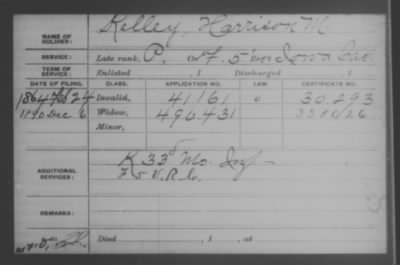 Kelley, Harrison M.
NAME OF SOLDIER:
SERVICE: Late rank, P. Co. F. 5 Reg't Iowa Cav.
TERM OF SERVICE: Enlisted , 1 Discharged , 1
DATE OF FILING. CLASS. APPLICATION NO. LAW. CERTIFICATE NO.
1864 24 Invalid, 41161 o 30.293
1890 Dec 6 Widow, 490.431
Minor,
ADDITIONAL SERVICES: K 33 Mo. Inf
F 5 V.R.C.
REMARKS:
Died , 1 , at